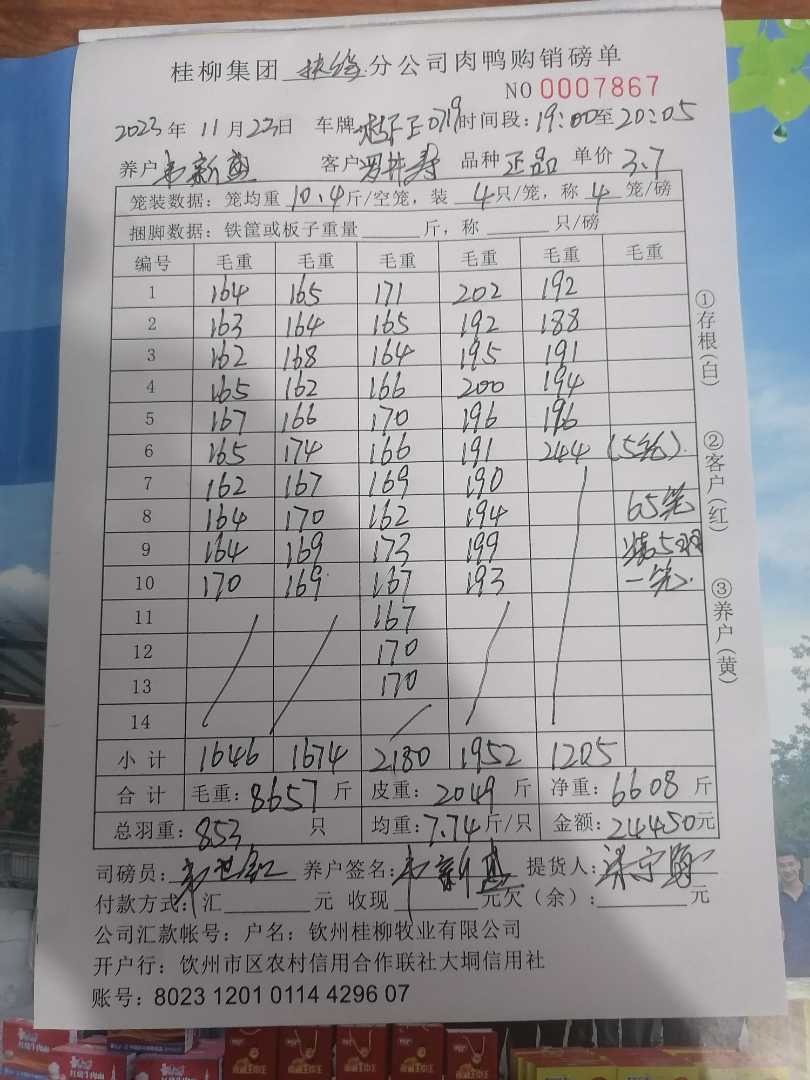 桂柳集团 扶绥 分公司肉鸭购销磅单
NO 0007867
2023年 11月23日 车牌 0719 时间段: 19:00至20:05
养户 韦新 客户 罗 寿 品种 正品 单价 3.7
笼装数据: 笼均重 10.4 斤/空笼, 装 4 只/笼, 称 4 笼/磅
捆脚数据: 铁筐或板子重量 斤, 称 只/磅
编号 毛重 毛重 毛重 毛重 毛重 毛重
1 164 165 171 202 192
2 163 164 165 192 188
3 162 168 164 195 191
4 165 162 166 200 194
5 167 166 170 196 196
6 165 174 166 191 244 (5笼).
7 162 167 169 190
8 164 170 162 194 65笼
9 164 169 173 199 装5羽
10 170 169 167 193 一笼.
11 167
12 170
13 170
14
小计 1646 1674 2180 1952 1205
合计 毛重: 8657 斤 皮重: 2049 斤 净重: 6608 斤
总羽重: 853 只 均重: 7.74 斤/只 金额: 24450元
司磅员: 韦世 养户签名: 韦新 提货人: 梁宁
付款方式: 汇 元 收现 元欠(余): 元
公司汇款帐号: 户名: 钦州桂柳牧业有限公司
开户行: 饮州市区农村信用合作联社大垌信用社
账号: 8023 1201 0114 4296 07
①存根(白)
②客户(红)
③养户(黄)